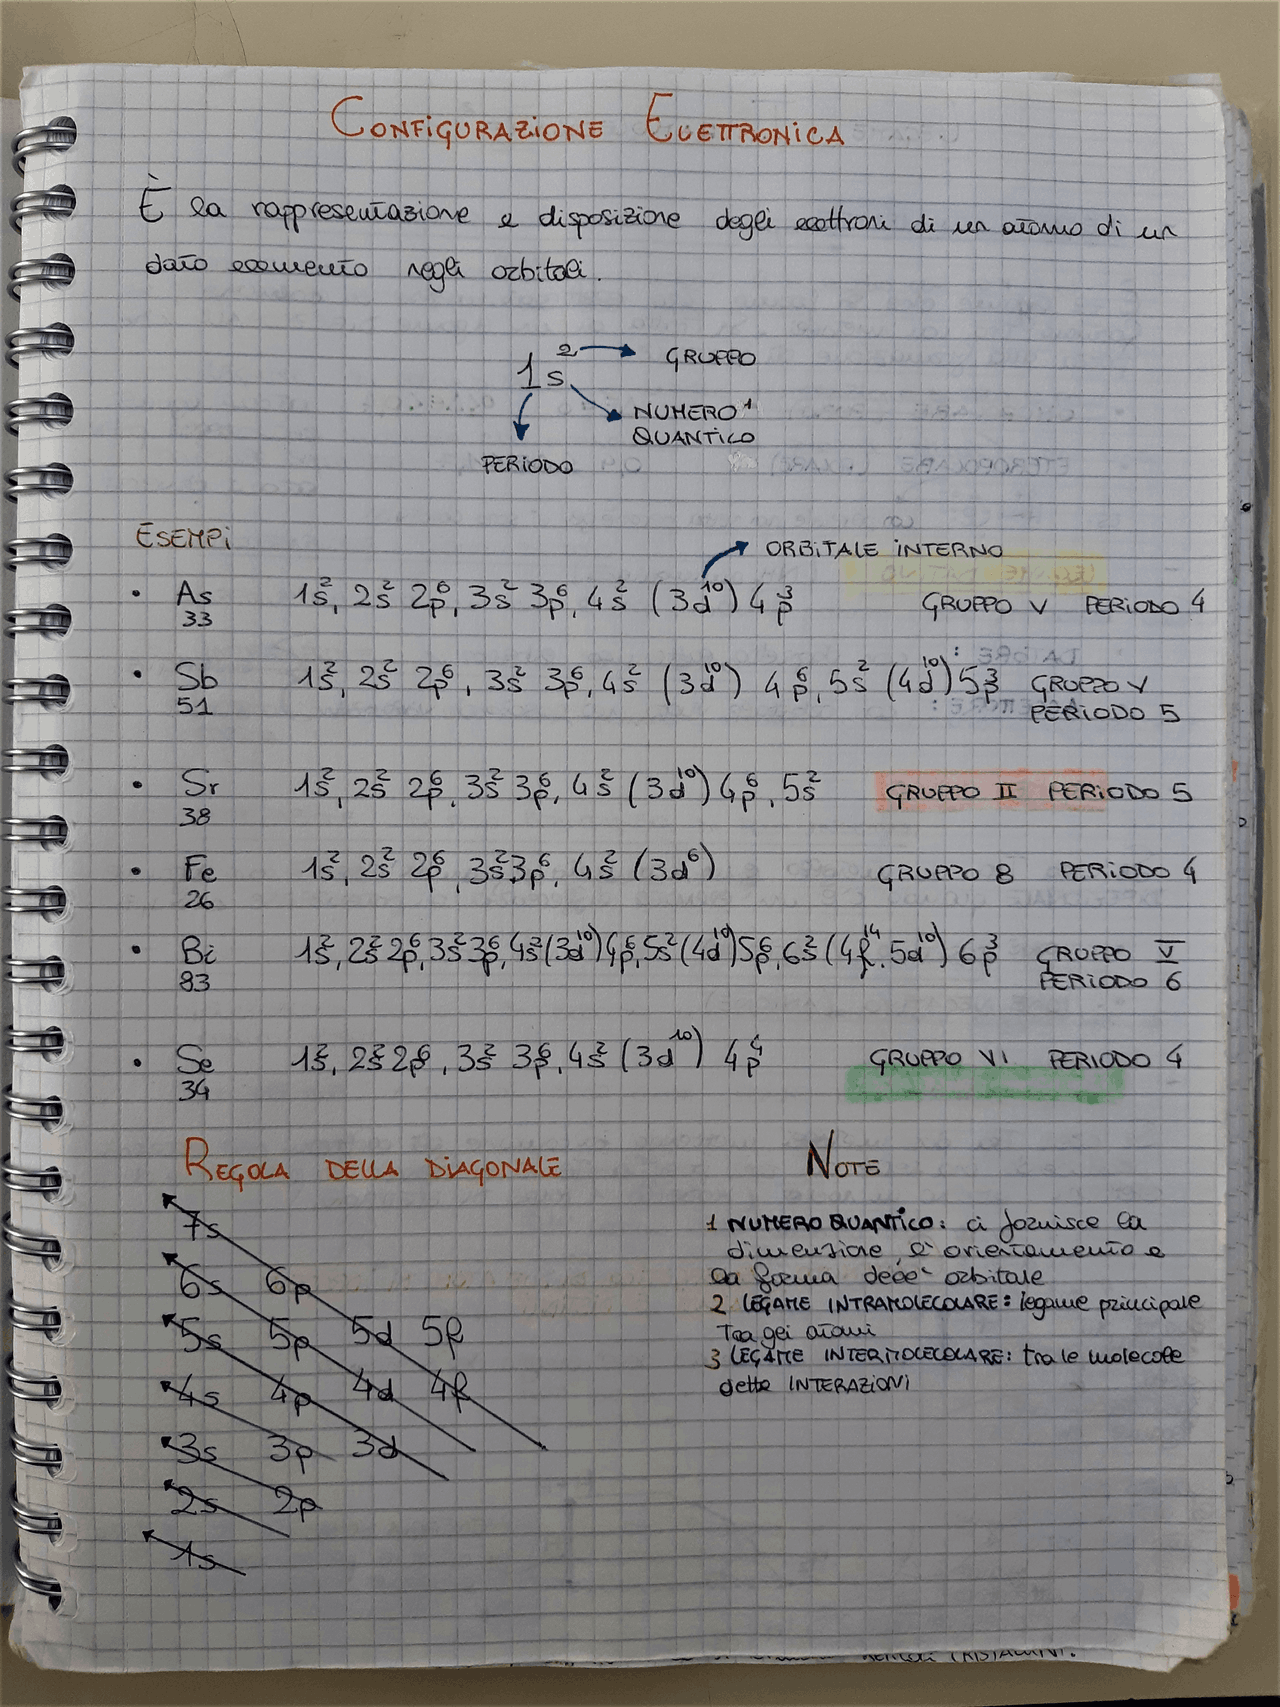 CONFIGURAZIONE ELETTRONICA
È la rappresentazione e disposizione degli elettroni di un atomo di un
dato elemento negli orbitali.
1s² GRUPPO
NUMERO ¹
QUANTICO
PERIODO
ESEMPI
ORBITALE INTERNO
• As 1s², 2s² 2p⁶, 3s² 3p⁶, 4s² (3d¹⁰) 4p³ GRUPPO V PERIODO 4
33
• Sb 1s², 2s² 2p⁶, 3s² 3p⁶, 4s² (3d¹⁰) 4p⁶, 5s² (4d¹⁰) 5p³ GRUPPO V
51 PERIODO 5
• Sr 1s², 2s² 2p⁶, 3s² 3p⁶, 4s² (3d¹⁰) 4p⁶, 5s² GRUPPO II PERIODO 5
38
• Fe 1s², 2s² 2p⁶, 3s² 3p⁶, 4s² (3d⁶) GRUPPO 8 PERIODO 4
26
• Bi 1s², 2s² 2p⁶, 3s² 3p⁶, 4s² (3d¹⁰) 4p⁶, 5s² (4d¹⁰) 5p⁶, 6s² (4f¹⁴, 5d¹⁰) 6p³ GRUPPO V
83 PERIODO 6
• Se 1s², 2s² 2p⁶, 3s² 3p⁶, 4s² (3d¹⁰) 4p⁴ GRUPPO VI PERIODO 4
34
REGOLA DELLA DIAGONALE
7s
6s 6p
5s 5p 5d 5f
4s 4p 4d 4f
3s 3p 3d
2s 2p
1s
NOTE
1 NUMERO QUANTICO: ci fornisce la
dimensione, l'orientamento e
la forma dell'orbitale
2 LEGAME INTRAMOLECOLARE: legame principale
Tra gli atomi
3 LEGAME INTERMOLECOLARE: tra le molecole
dette INTERAZIONI